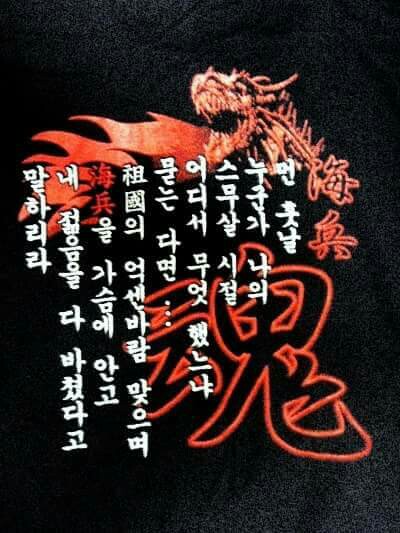 海兵
魂
먼 훗날
누군가 나의
스무살 시절
어디서 무엇 했느냐
묻는 다면 ...
祖國의 억센바람 맞으며
海兵을 가슴에 안고
내 젊음을 다 바쳤다고
말하리라